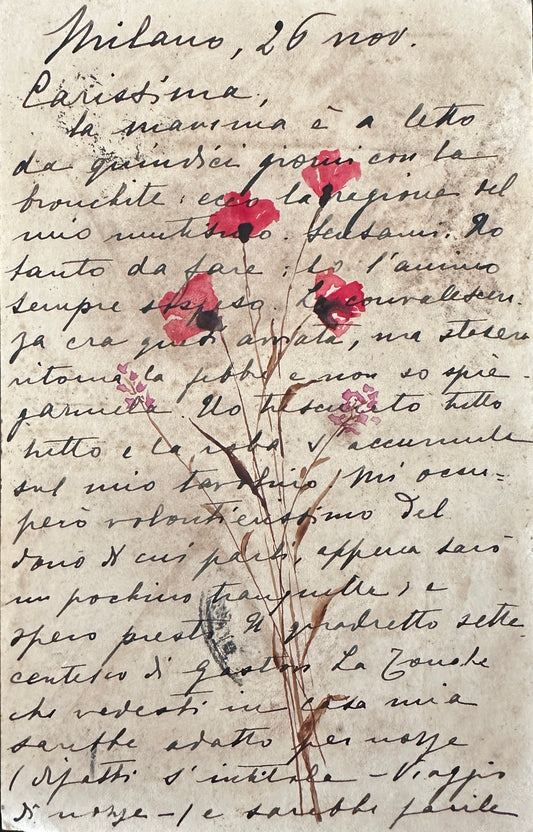 Milano, 26 nov.
Carissima,
la mamma è a letto
da quindici giorni con la
bronchite: ecco la ragione del
mio mutismo. Scusami. Ho
tanto da fare: ho l'animo
sempre sospeso. La convalescen-
za era quasi avviata, ma stasera
ritorna la febbre e non so spie-
garmela. Ho trascurato tutto
tutto e la roba s'accumula
sul mio tavolino. Mi occu=
però volontierissimo del
dono di cui parli, appena sarò
un pochino tranquilla, e
spero presto. Il quadretto sette-
centesco di Gaston La Touche
che vedesti in casa mia
sarebbe adatto per nozze
(difatti s'intitola - Viaggio
di nozze -) e sarebbe facile